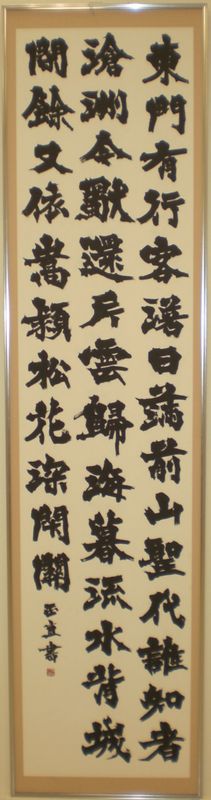 東門有行客落日満前山聖代誰知者
滄洲今獨還片雲歸海暮流水背城
閑餘又依嵩潁松花深閉關
書